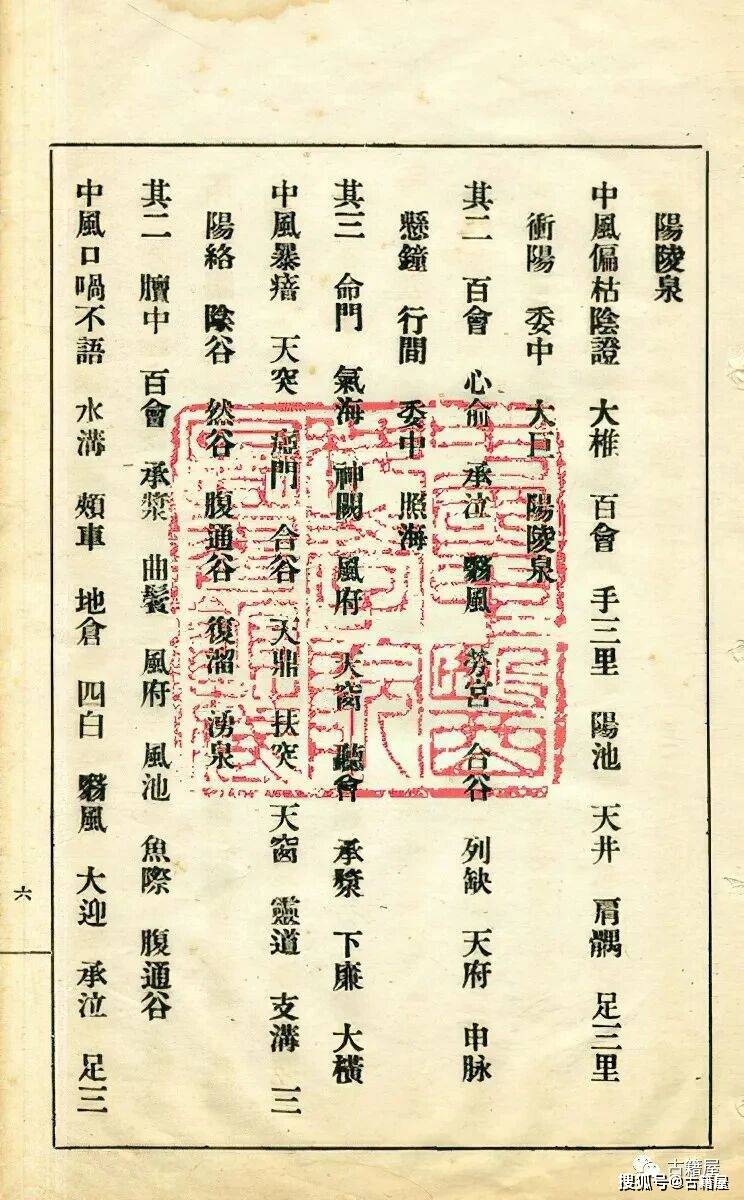 陽陵泉
中風偏枯陰證 大椎 百會 手三里 陽池 天井 肩髃 足三里
衝陽 委中 大巨 陽陵泉
其二 百會 心俞 承泣 翳風 勞宮 合谷 列缺 天府 申脉
懸鐘 行間 委中 照海
其三 命門 氣海 神闕 風府 天窗 聽會 承漿 下廉 大橫
中風暴瘖 天突 瘂門 合谷 天鼎 扶突 天窗 靈道 支溝 三
陽絡 陰谷 然谷 腹通谷 復溜 湧泉
其二 膻中 百會 承漿 曲鬢 風府 風池 魚際 腹通谷
中風口喎不語 水溝 頰車 地倉 四白 翳風 大迎 承泣 足三
六
古籍屋
搜狐号@古籍屋